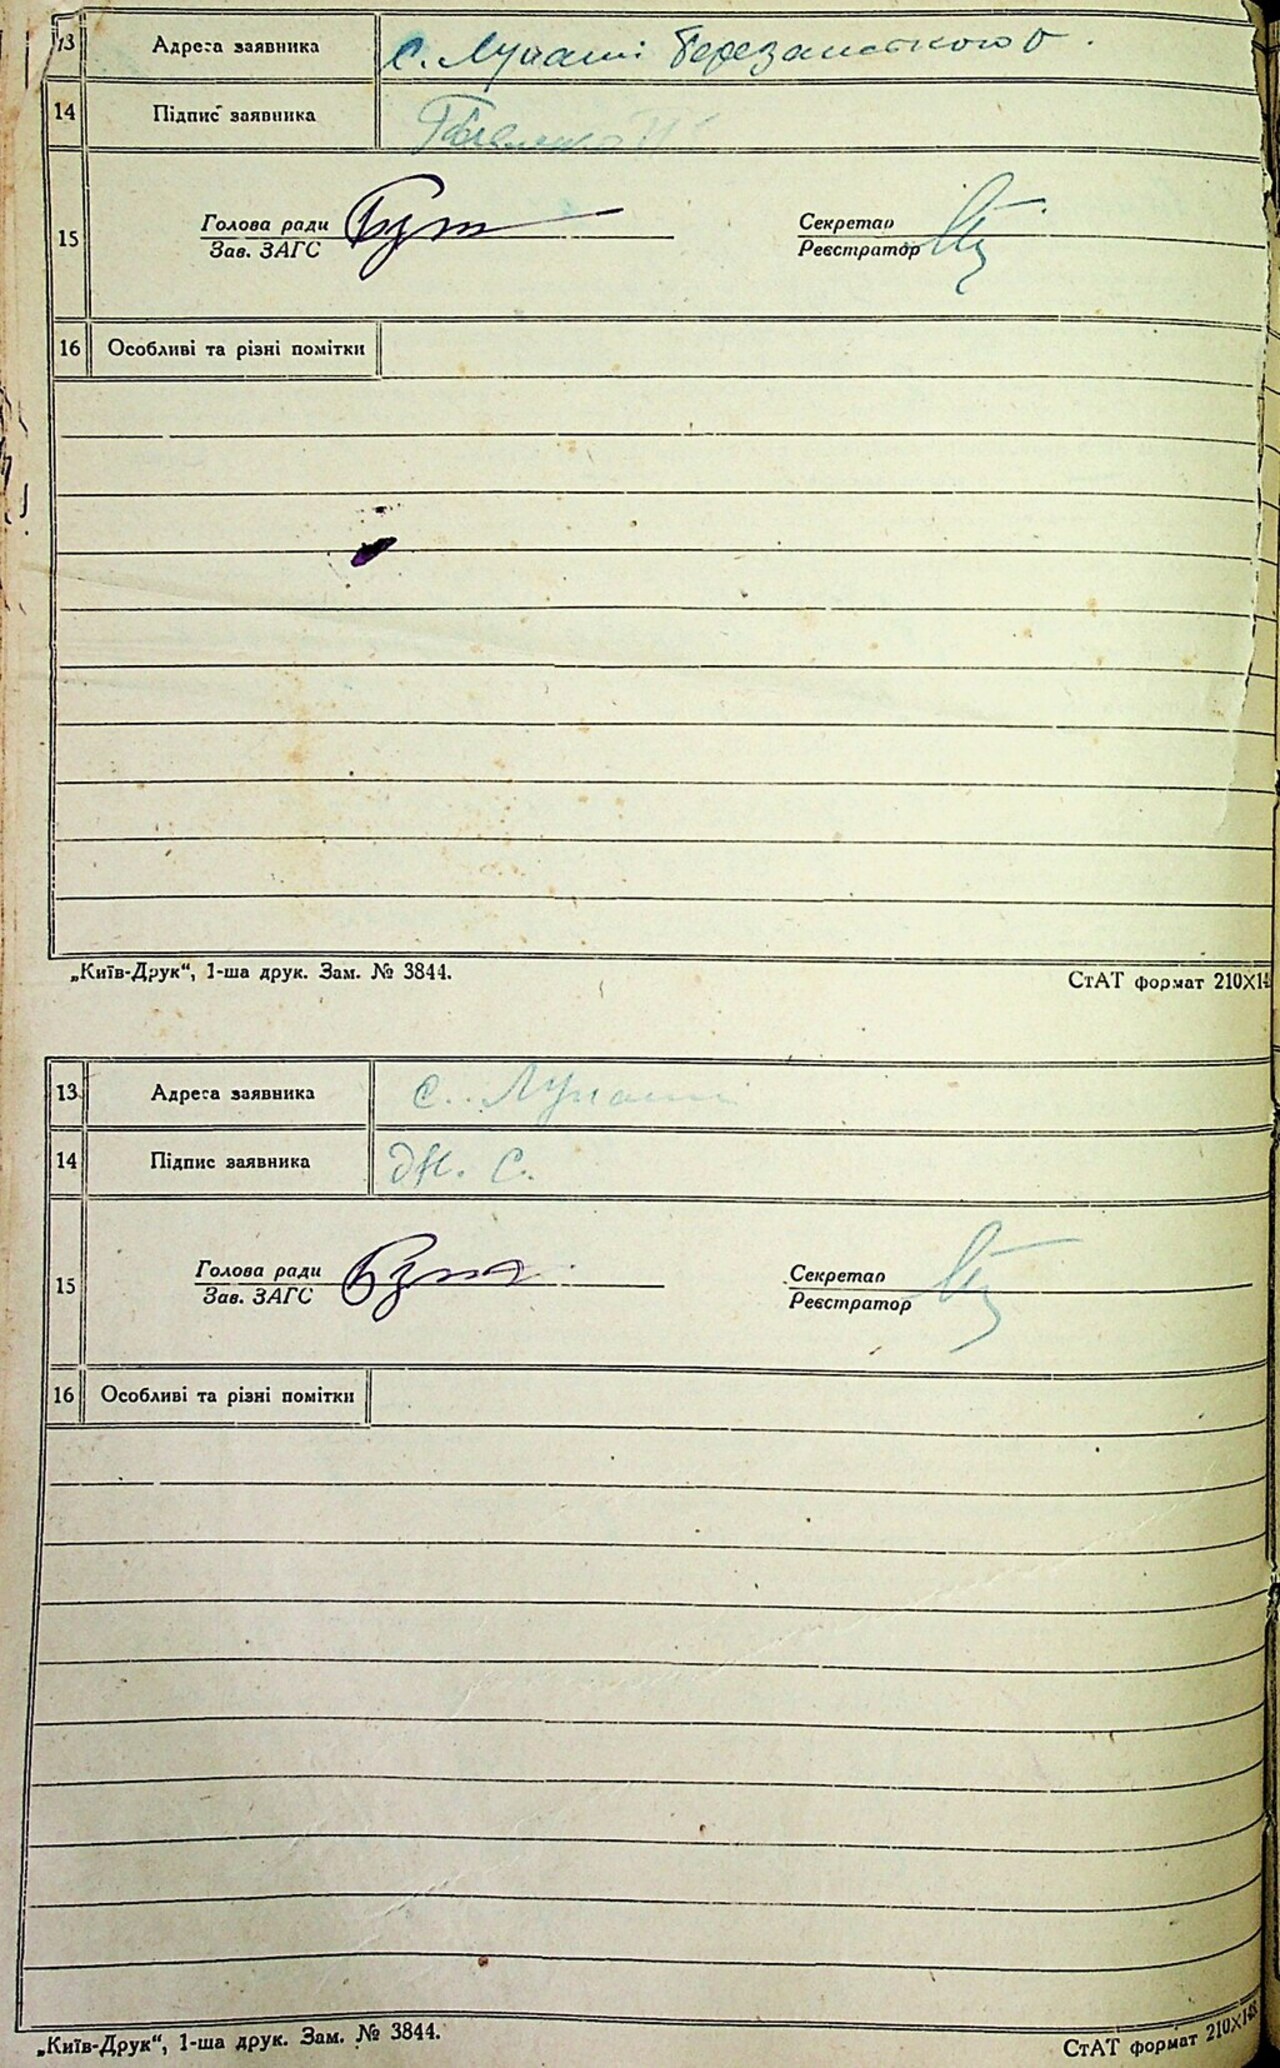 13 Адреса заявника с. Лупаші Березанського
14 Підпис заявника
15 Голова ради Секретар
Зав. ЗАГС Реєстратор
16 Особливі та різні помітки
„Київ-Друк“, 1-ша друк. Зам. № 3844. СтАТ формат 210X14
13 Адреса заявника с. Лупаші
14 Підпис заявника
15 Голова ради Секретар
Зав. ЗАГС Реєстратор
16 Особливі та різні помітки
„Київ-Друк“, 1-ша друк. Зам. № 3844. СтАТ формат 210X148